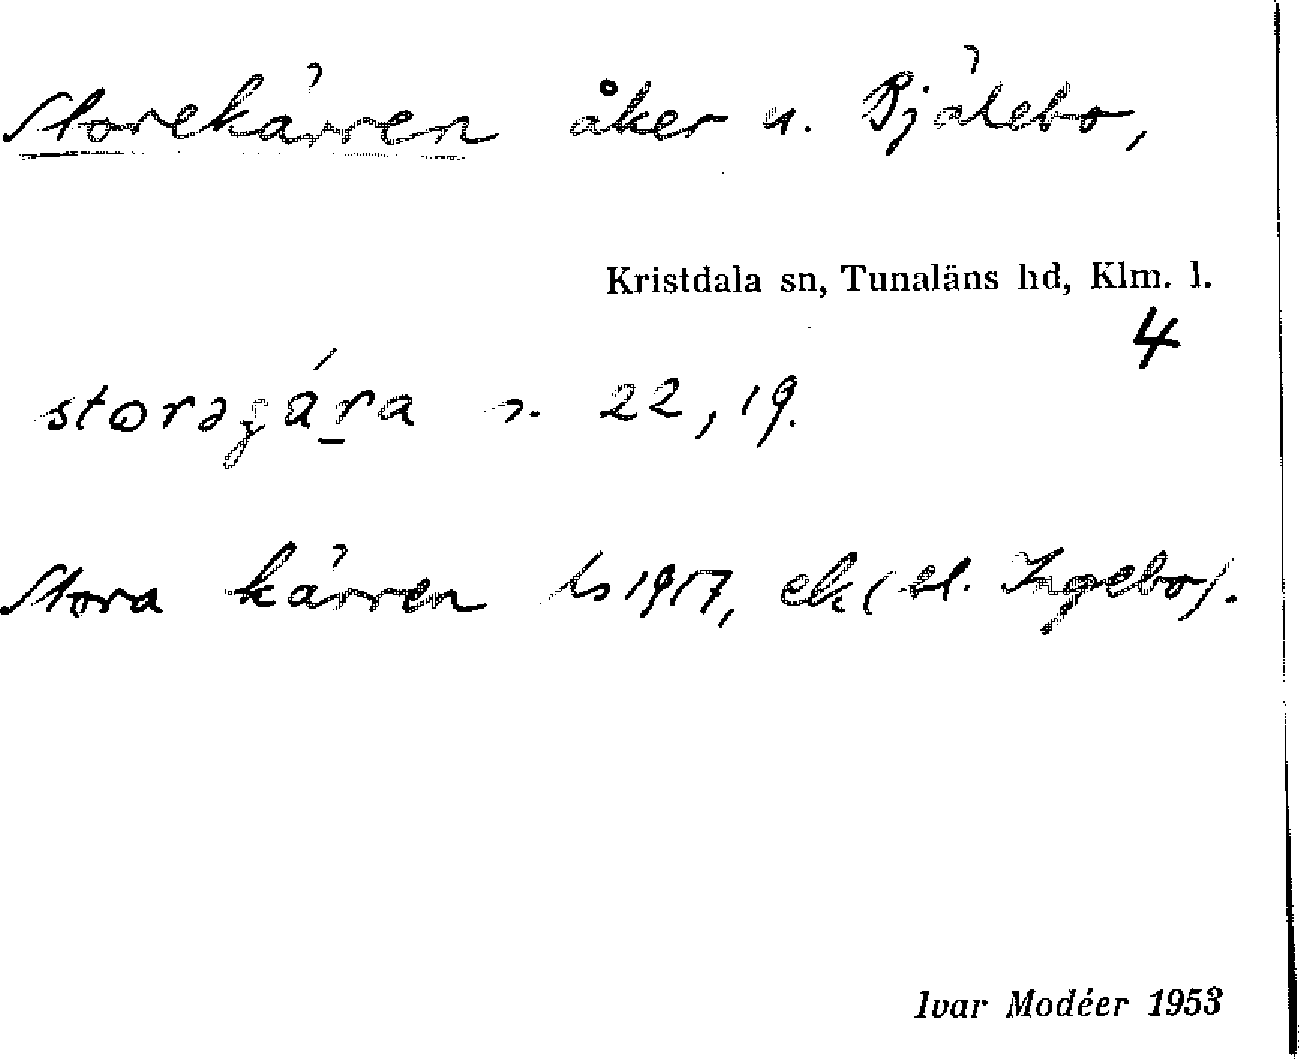 Storekärren åker u. Bjälebo,
Kristdala sn, Tunaläns hd, Klm. l.
4
22, 19.
Stora kärren ls 1917, ek (bl. Ingebo).
Ivar Modéer 1953